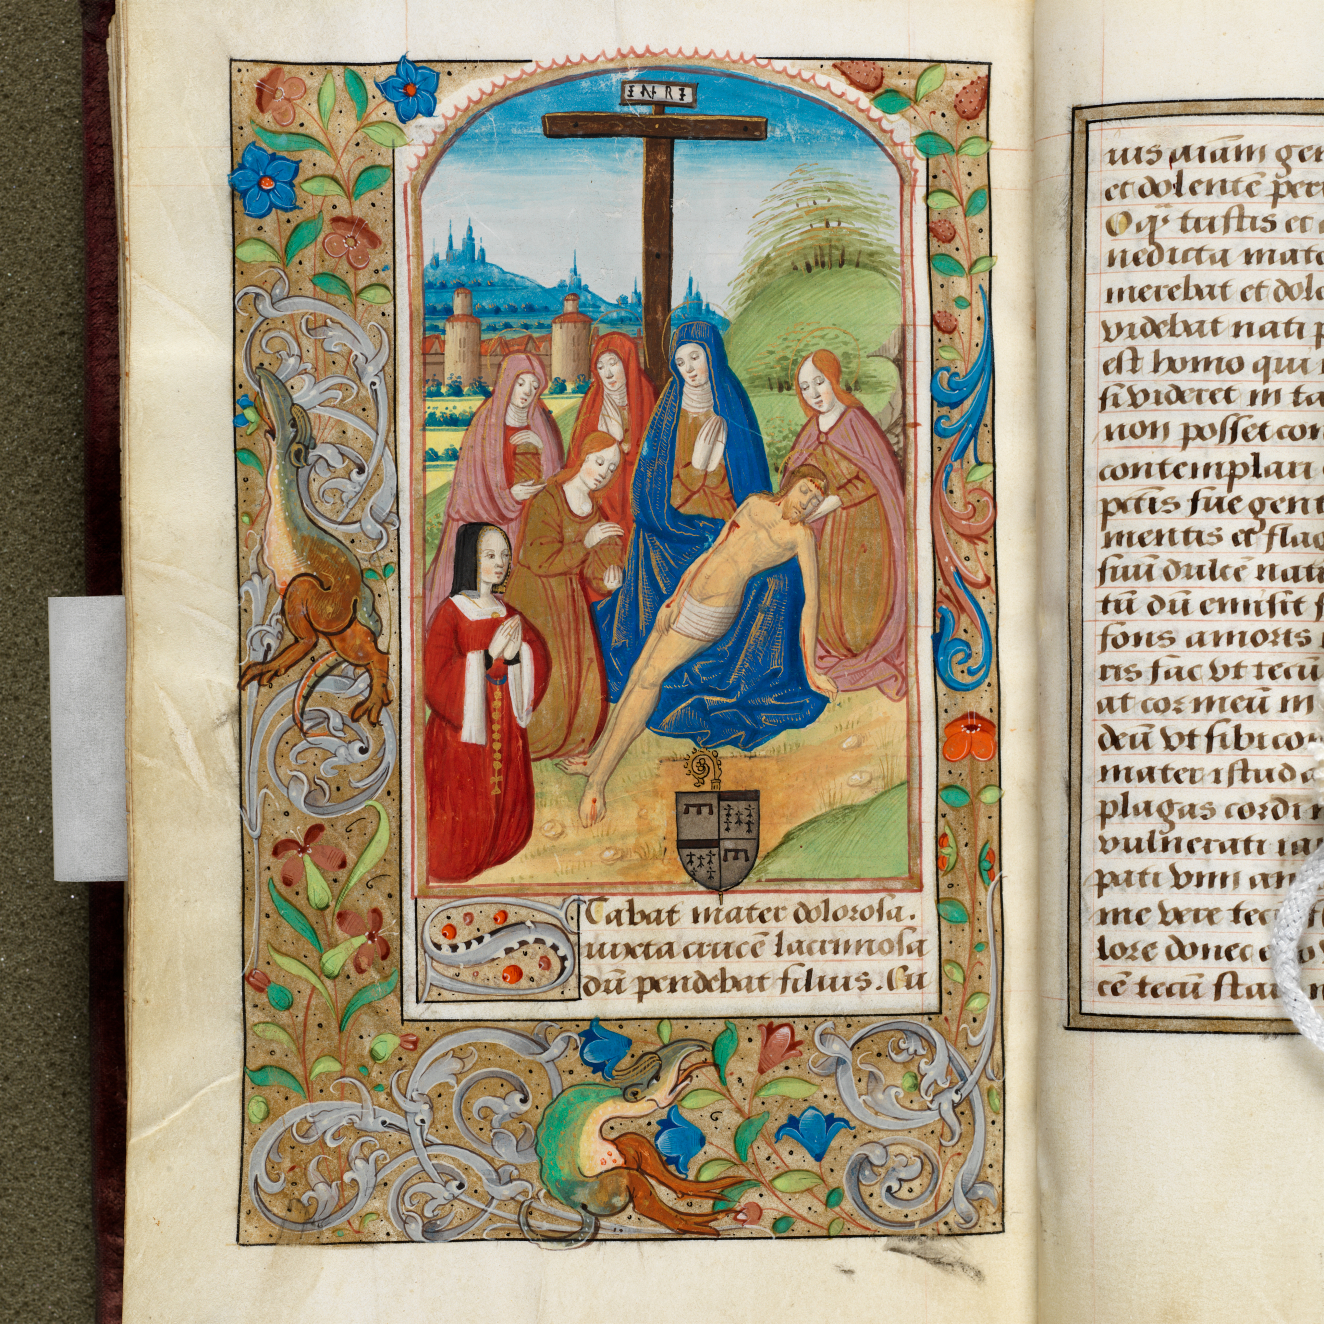 INRI
Stabat mater dolorosa.
iuxta crucē lacrimosa
dū pendebat filius. Cu
ius aīam gem
et dolentē per
O q̄ tristis et
nedicta mate
merebat et dole
videbat nati p
est homo qui
si videret in ta
non posset con
contemplari
pctīs sue gent
mentis et flag
suū dulcē natu
tū dū emisit s
fons amoris
ris fac vt tecū
at cor meū in
deū vt sibi co
mater istud a
plagas cordi
vulnerati
pati vnu
me vere tecū
lore donec
cē tecū star